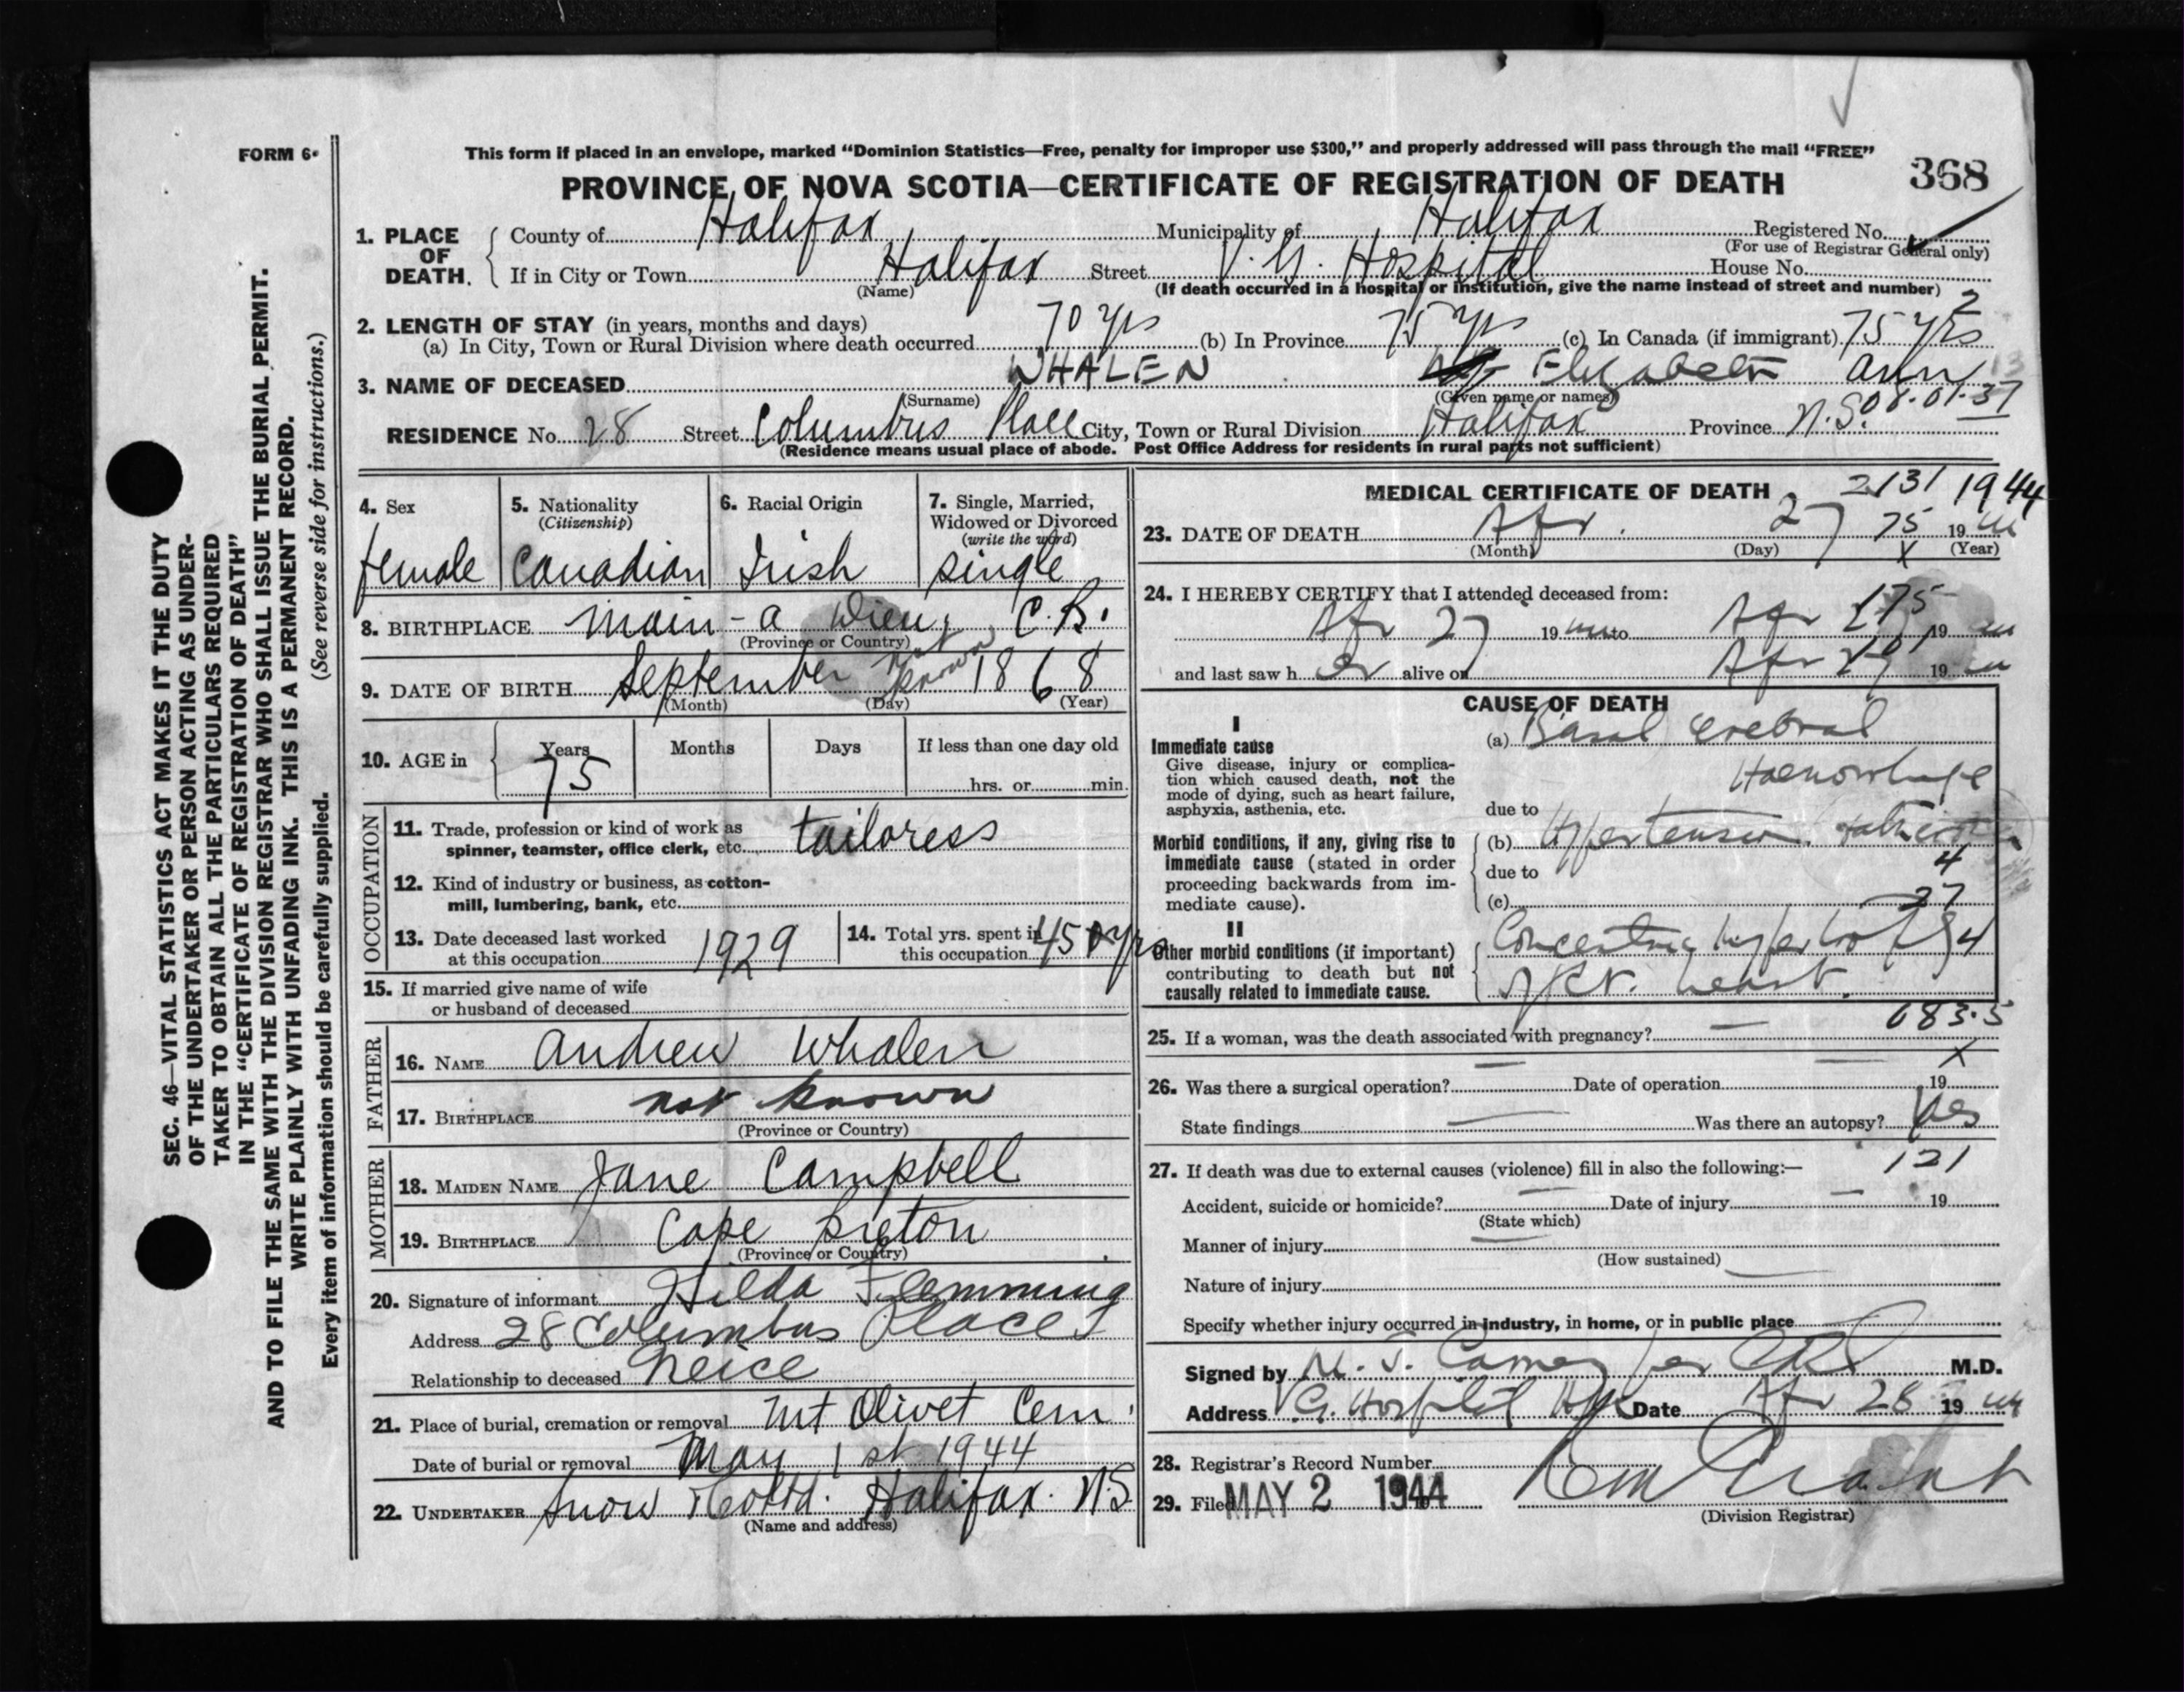 FORM 6.
This form if placed in an envelope, marked “Dominion Statistics—Free, penalty for improper use $300,” and properly addressed will pass through the mail “FREE”
PROVINCE OF NOVA SCOTIA—CERTIFICATE OF REGISTRATION OF DEATH
368
1. PLACE OF DEATH. County of Halifax Municipality of Halifax Registered No.
(For use of Registrar General only)
If in City or Town Halifax Street V. G. Hospital House No.
(Name) (If death occurred in a hospital or institution, give the name instead of street and number)
2. LENGTH OF STAY (in years, months and days)
(a) In City, Town or Rural Division where death occurred 70 yrs (b) In Province 75 yrs (c) In Canada (if immigrant) 75 yrs 2
3. NAME OF DECEASED WHALEN Elizabeth Ann
(Surname) (Given name or names)
08.01.37
RESIDENCE No. 28 Street Columbus Place City, Town or Rural Division Halifax Province N.S.
(Residence means usual place of abode. Post Office Address for residents in rural parts not sufficient)
4. Sex
female
5. Nationality
(Citizenship)
Canadian
6. Racial Origin
Irish
7. Single, Married,
Widowed or Divorced
(write the word)
single
8. BIRTHPLACE Main-a Dieu, C.B.
(Province or Country)
9. DATE OF BIRTH September not known 1868
(Month) (Day) (Year)
10. AGE in Years Months Days If less than one day old
75 hrs. or min.
OCCUPATION
11. Trade, profession or kind of work as
spinner, teamster, office clerk, etc. tailoress
12. Kind of industry or business, as cotton-
mill, lumbering, bank, etc.
13. Date deceased last worked
at this occupation 1929
14. Total yrs. spent in
this occupation 45 yrs
15. If married give name of wife
or husband of deceased
FATHER
16. NAME Andrew Whalen
17. BIRTHPLACE not known
(Province or Country)
MOTHER
18. MAIDEN NAME Jane Campbell
19. BIRTHPLACE Cape Breton
(Province or Country)
20. Signature of informant Hilda Flemming
Address 28 Columbus Place
Relationship to deceased Neice
21. Place of burial, cremation or removal Mt Olivet Cem.
Date of burial or removal May 1st 1944
22. UNDERTAKER Snow & Co Ltd. Halifax. N.S.
(Name and address)
MEDICAL CERTIFICATE OF DEATH
2131 1944
23. DATE OF DEATH Apr. 27 75 19 44
(Month) (Day) X (Year)
24. I HEREBY CERTIFY that I attended deceased from:
Apr 27 19 44 to Apr 27 19 44
175
and last saw h er alive on Apr 27 19 44
CAUSE OF DEATH
I
Immediate cause
Give disease, injury or complica-
tion which caused death, not the
mode of dying, such as heart failure,
asphyxia, asthenia, etc.
(a) Basal Cerebral
Haemorrhage
due to
Morbid conditions, if any, giving rise to
immediate cause (stated in order
proceeding backwards from im-
mediate cause).
(b) Hypertension
due to
4
(c) 27
II
Other morbid conditions (if important)
contributing to death but not
causally related to immediate cause.
Concentric hypertrophy 4
of Rt. heart.
683.5
25. If a woman, was the death associated with pregnancy? —
X
26. Was there a surgical operation? — Date of operation — 19
State findings — Was there an autopsy? Yes
27. If death was due to external causes (violence) fill in also the following:—
121
Accident, suicide or homicide? — Date of injury — 19
(State which)
Manner of injury —
(How sustained)
Nature of injury —
Specify whether injury occurred in industry, in home, or in public place
Signed by M.D.
Address V. G. Hospital Hfx Date Apr 28 19 44
28. Registrar's Record Number
29. Filed MAY 2 1944
(Division Registrar)
SEC. 46—VITAL STATISTICS ACT MAKES IT THE DUTY
OF THE UNDERTAKER OR PERSON ACTING AS UNDER-
TAKER TO OBTAIN ALL THE PARTICULARS REQUIRED
IN THE “CERTIFICATE OF REGISTRATION OF DEATH”
AND TO FILE THE SAME WITH THE DIVISION REGISTRAR WHO SHALL ISSUE THE BURIAL PERMIT.
WRITE PLAINLY WITH UNFADING INK. THIS IS A PERMANENT RECORD.
(See reverse side for instructions.)
Every item of information should be carefully supplied.